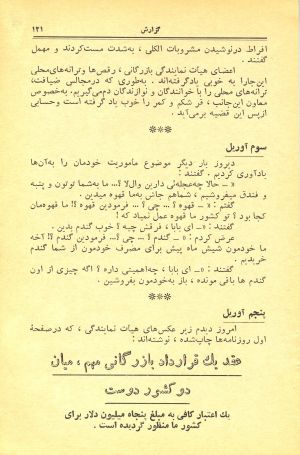 گزارش ۱۲۱
افراط درنوشیدن مشروبات الکلی ، به‌شدت مست‌کردند و مهمل
گفتند .
اعضای هیأت نمایندگی بازرگانی ، رقص‌ها وترانه‌های‌محلی
این‌جارا به خوبی یادگرفته‌اند . به‌طوری که درمجالس ضیافت ،
ترانه‌های محلی را با خوانندگان و نوازندگان دم‌می‌گیریم. به‌خصوص
معاون این‌جانب ، قر شکم و کمر را خوب یاد گرفته است وحسابی
ازپس این قضیه برمی‌آید .
***
سوم آوریل
دیروز بار دیگر موضوع ماموریت خودمان را به‌آن‌ها
یادآوری کردیم . گفتند :
« ـ حالا چه‌عجله‌ئی دارین والا؟... ما به‌شما توتون و پنبه
و فندق میفروشیم ، شماهم جاش به‌ما قهوه میدین .
گفتم : « ـ قهوه ؟ ... چی ؟ ... فرمودین قهوه ؟! ما قهوه‌مان
کجا بود ؟ تو کشور ما قهوه عمل نمیاد که !
گفتند : « ـ ای بابا ، فرقش چیه ؟ خوب گندم بدین .
عرض کردم : « ـ گندم ؟ ... چی ؟ ... فرمودین گندم ؟! آخه
ما خودمون شیش ماه پیش برای مصرف خودمون از شما گندم
خریدیم .
گفتند : « ـ ای بابا ، چه‌اهمیتی داره ؟ اگه چیزی از اون
گندم ها باقی مونده ، باز به‌خودمون بفروشین .
***
پنجم آوریل
امروز دیدم زیر عکس‌های هیات نمایندگی ، که درصفحهٔ
اول روزنامه‌ها چاپ‌شده ، نوشته‌اند :
عقد یك قرارداد بازرگانی مهم ، میان
دو کشور دوست
یك اعتبار کافی به مبلغ پنجاه میلیون دلار برای
کشور ما منظور گردیده است .